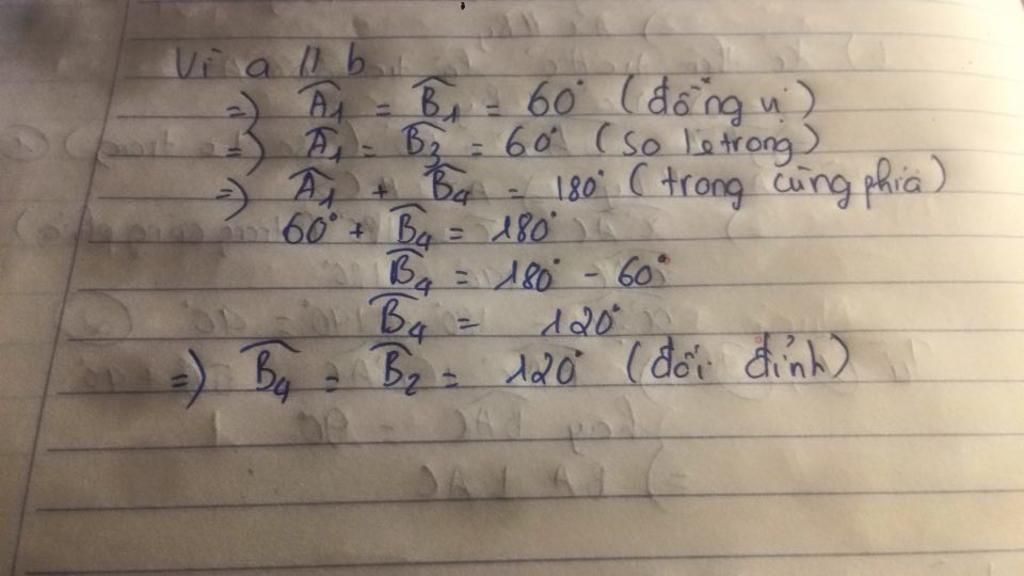 Vì a // b
=) Â1 = B̂1 = 60° (đồng vị)
=) Â1 = B̂3 = 60° (so le trong)
=) Â1 + B̂4 = 180° (trong cùng phía)
60° + B̂4 = 180°
B̂4 = 180° - 60°
B̂4 = 120°
=) B̂4 = B̂2 = 120° (đối đỉnh)